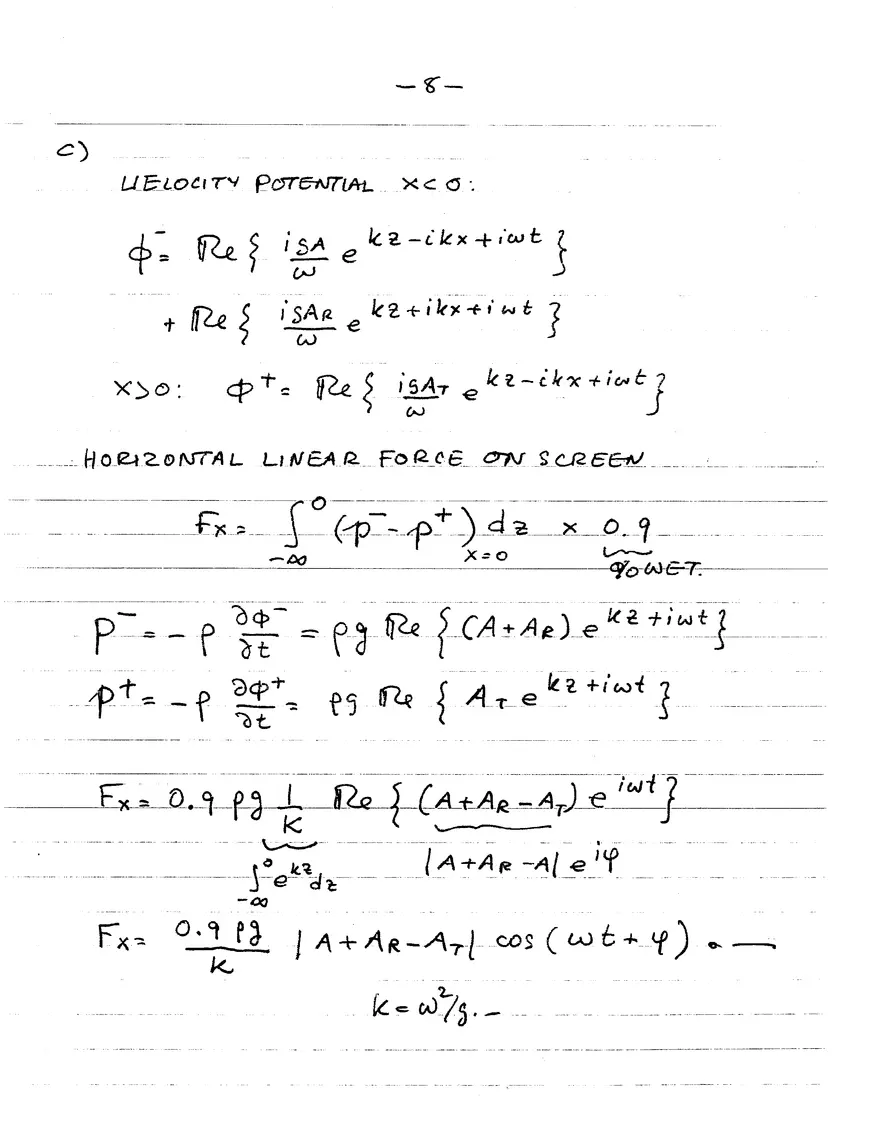 — 8 —
c)
VELOCITY POTENTIAL X < 0 :
ϕ⁻ = Re { igA/ω e^{kz - ikx + iωt} }
+ Re { igA_R/ω e^{kz + ikx + iωt} }
X > 0 : ϕ⁺ = Re { igA_T/ω e^{kz - ikx + iωt} }
HORIZONTAL LINEAR FORCE ON SCREEN
F_x = ∫_{-∞}^{0} (p⁻ - p⁺)_{x=0} dz × 0.9
% WET.
p⁻ = - ρ ∂ϕ⁻/∂t = ρg Re { (A + A_R) e^{kz + iωt} }
p⁺ = - ρ ∂ϕ⁺/∂t = ρg Re { A_T e^{kz + iωt} }
F_x = 0.9 ρg 1/K Re { (A + A_R - A_T) e^{iωt} }
∫_{-∞}^{0} e^{kz} dz |A + A_R - A| e^{iφ}
F_x = 0.9 ρg/k |A + A_R - A_T| cos (ωt + φ) . —
k = ω²/g . –